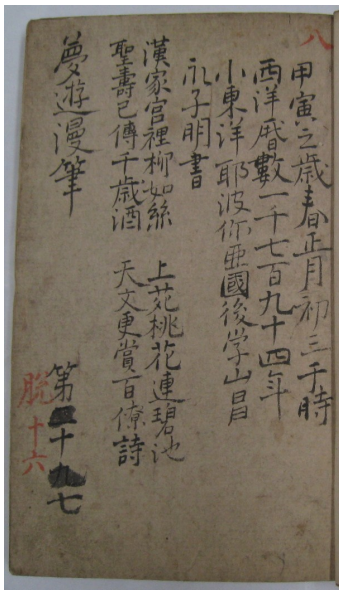 八
甲寅之歳春正月初三于時
西洋暦數一千七百九十四年
小東洋 耶波尓亜國後学山昌
永子明書
漢家宮裡柳如絲 上苑桃花連碧池
聖壽已傳千歳酒 天文更賞百僚詩
夢遊漫筆 第十九七
脱十六